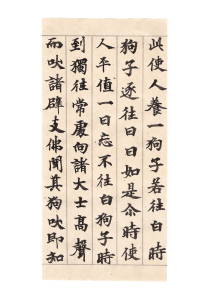 此使人養一狗子若往白時
狗子逐往日日如是尒時使
人平值一日忘不往白狗子時
到獨往常處向諸大士高聲
而吠諸辟支佛聞其狗吠即知